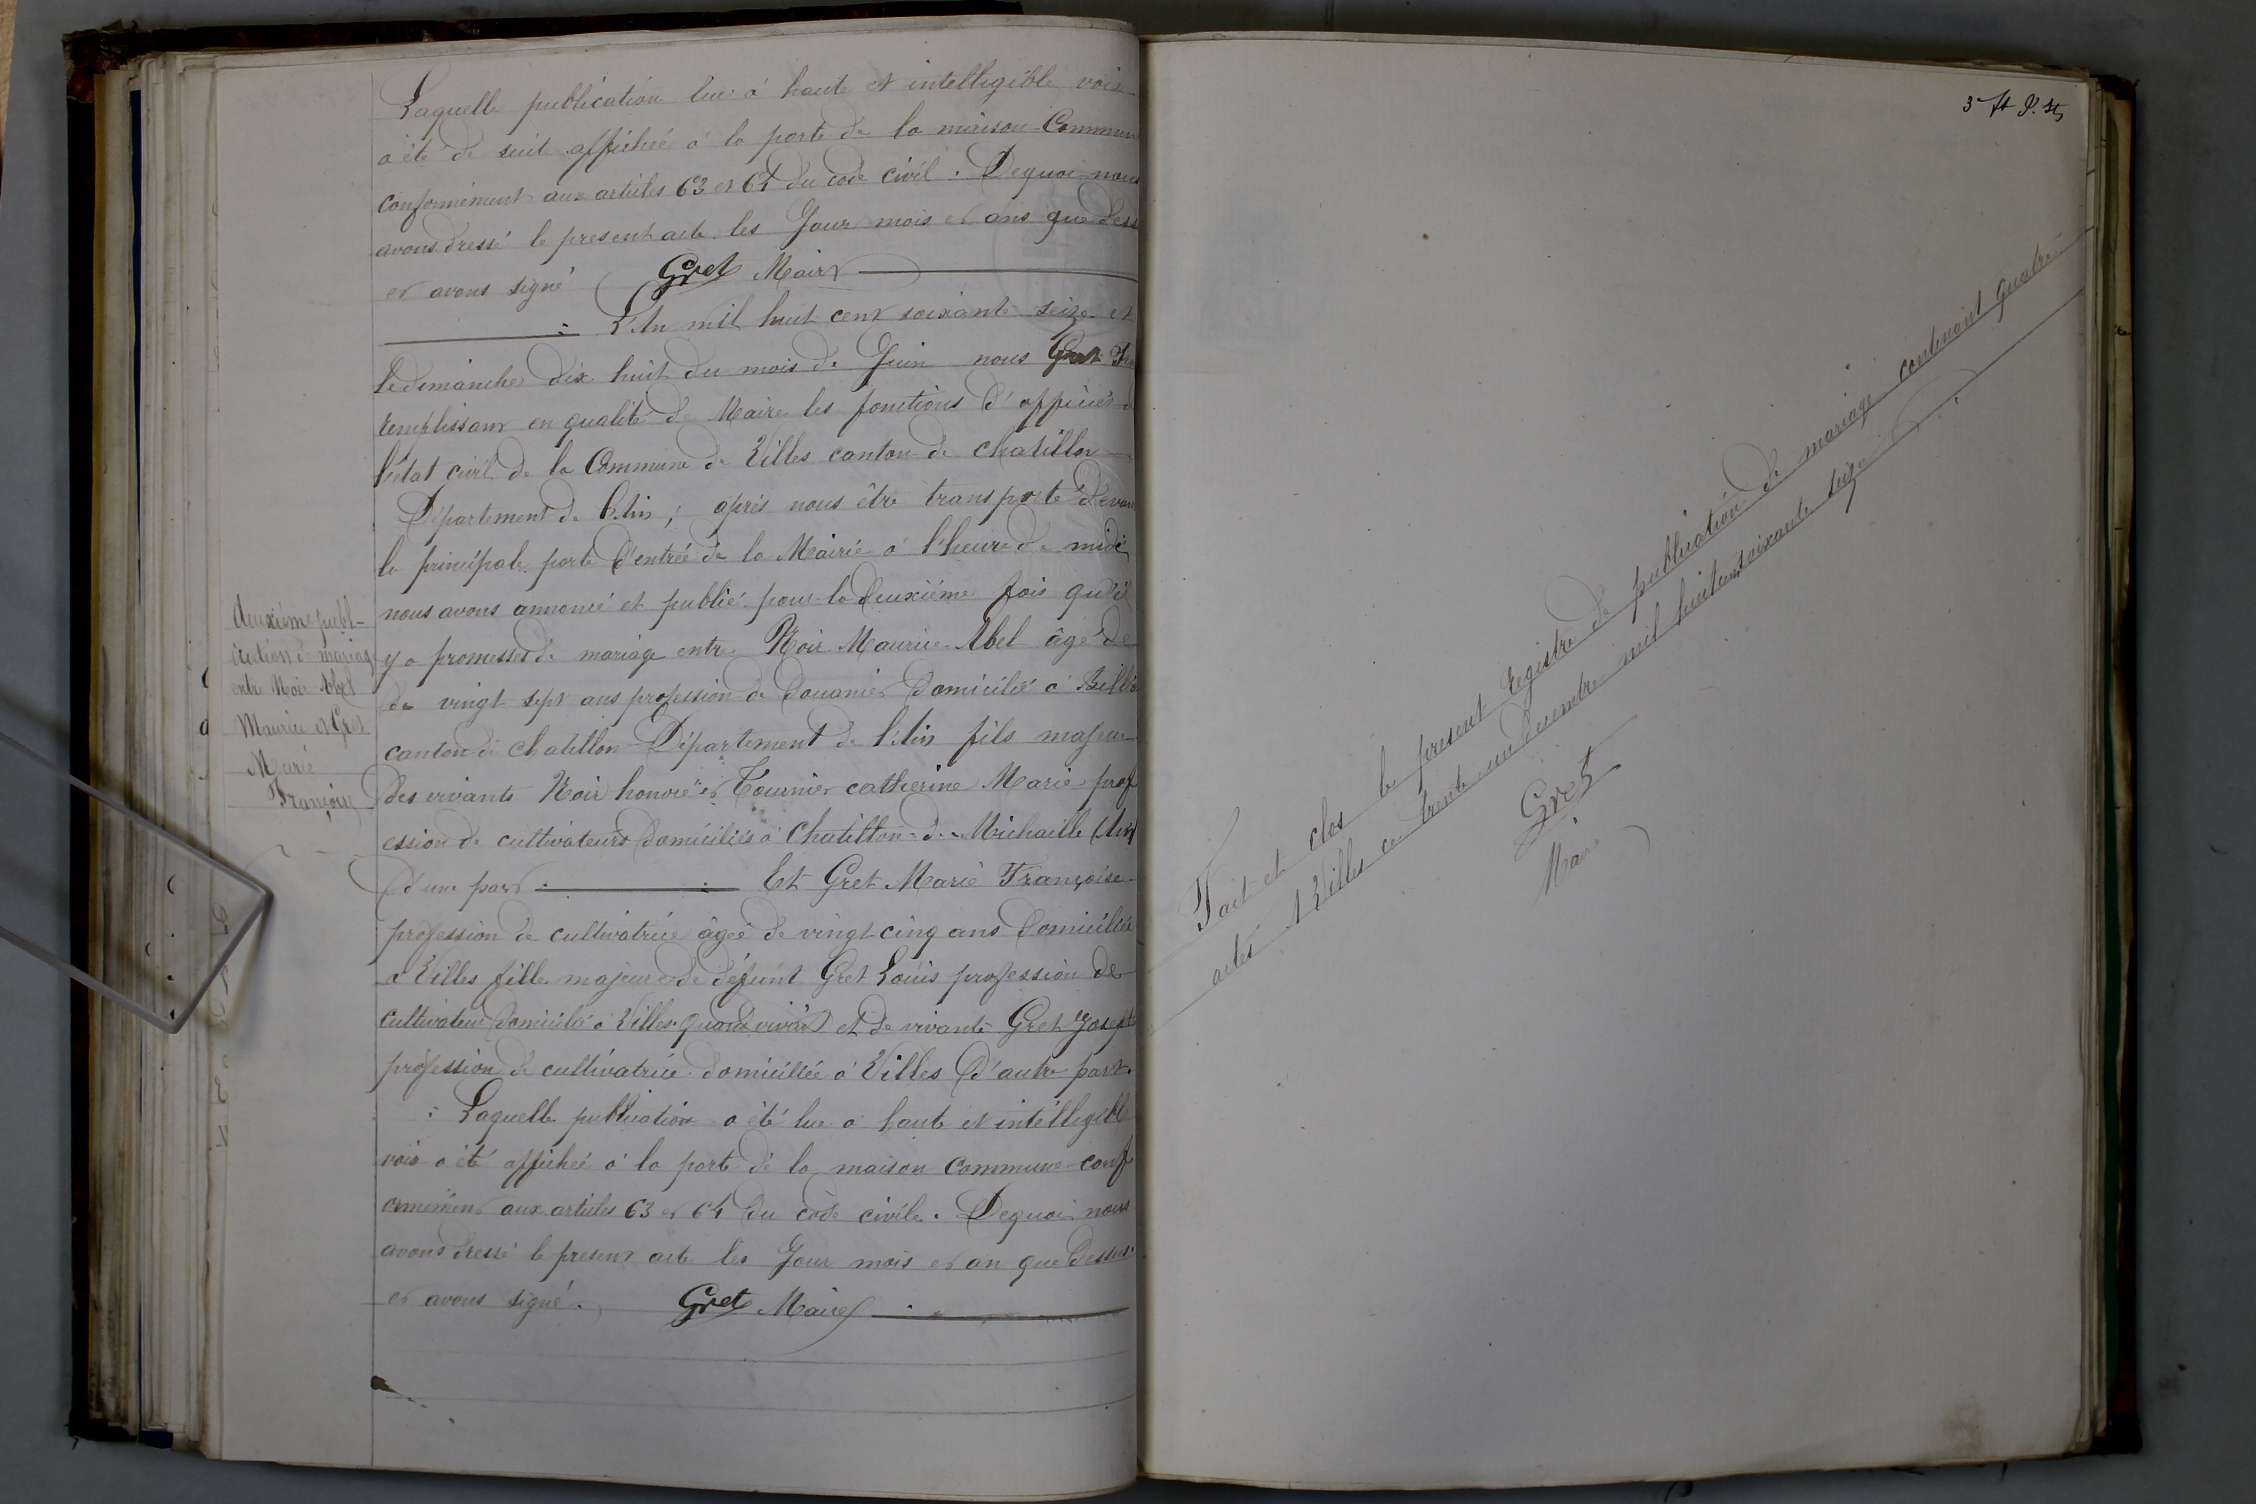 Laquelle publication lue à haute et intelligible voix
a été de suite affichée à la porte de la maison Commune
conformément aux articles 63 et 64 du code civil. Dequoi nous
avons dressé le present acte les Jour mois et ans que dess
et avons signé Gret Maire
L'An mil huit cent soixante seize et
le dimanche dix huit du mois de Juin nous Gret
remplissant en qualité de Maire les fonctions d'officier d
l'état civil de la Commune de Villes canton de Chatillon
Département de l'Ain ; après nous être transporté devant
la principale porte d'entrée de la Mairie à l'heure de midi
nous avons annoncé et publié pour la deuxième fois qu'il
y a promesses de mariage entre Noir Maurice Abel âgé de
de vingt sept ans profession de Douanier domicilié à
canton de Chatillon Département de l'Ain fils majeur
des vivants Noir honoré et Tournier catherine Marie prof
ession de cultivateurs domiciliés à Chatillon-de-Michaille (Ain)
d'une part : Et Gret Marie Françoise
profession de cultivatrice âgée de vingt cinq ans domiciliée
à Villes fille majeure de défunt Gret Louis profession de
cultivateur domicilié à Villes quand vivait et de vivante Gret Josepte
profession de cultivatrice domiciliée à Villes d'autre part.
: Laquelle publication a été lue à haute et intelligible
voix a été affichée à la porte de la maison commune conf
ormément aux articles 63 et 64 du code civile. Dequoi nous
avons dressé le present acte les Jour mois et an que dessus
et avons signé. Gret Maire
deuxième publi-
cation de mariage
entre Noir Abel
Maurice et Gret
Marie
Françoise
3e
Fait et clos le present registre de publication de mariage contenant quatre
actes A Villes ce trente un Decembre mil huit cent soixante seize
Gret
Maire